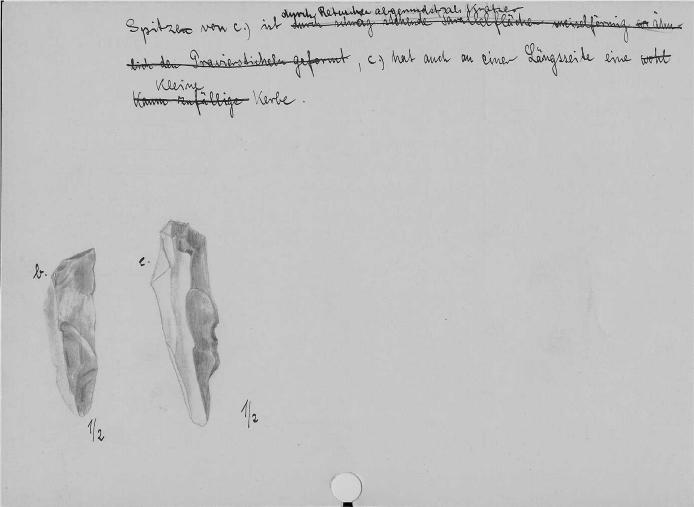 durch Retuschen abgerundet als Kratzer
Spitze von c.) ist durch schräg stehende Parallelfläche meiselförmig so ähn-
lich den Gravierstichel geformt, c) hat auch an einer Längsseite eine wohl
kleine
kaum zufällige Kerbe.
b.
c.
1/2
1/2